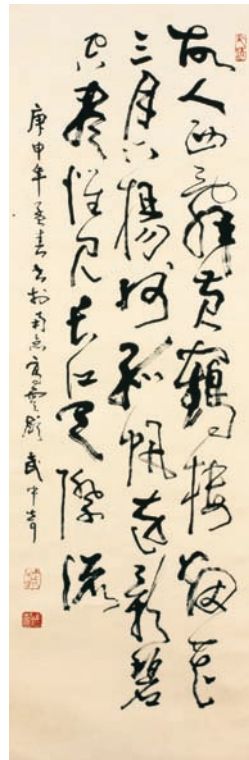 故人西辭黄鶴樓烟花
三月下揚州孤帆遠影碧
空盡惟見長江天際流
庚申年孟春書於南京 武中奇